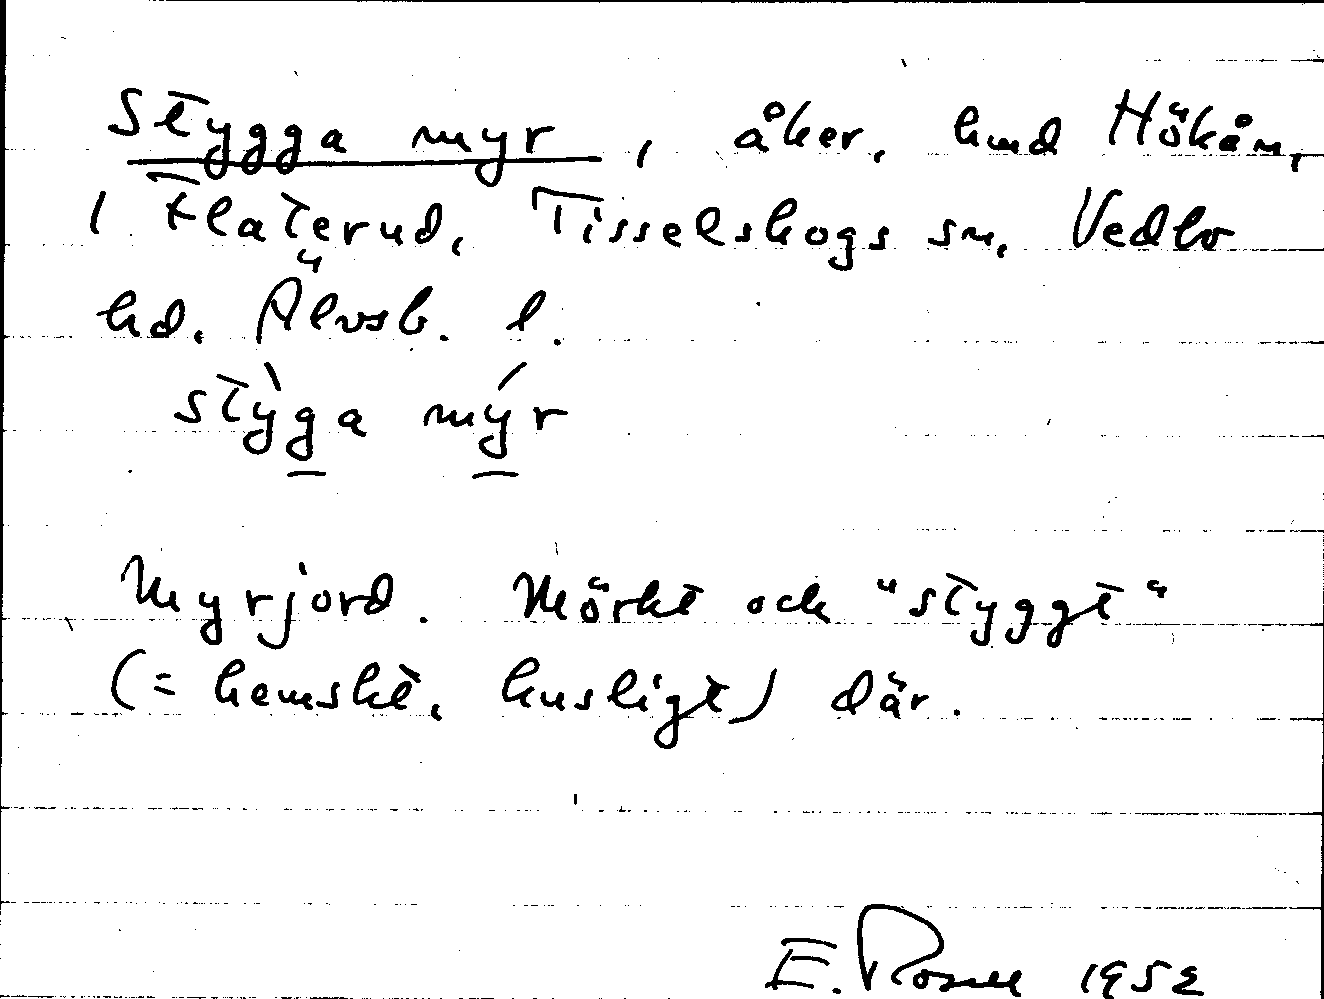 Stygga myr, åker, hmd Hökån,
1 Flaterud, Tisselskogs sn, Vedbo
hd. Älvsb. l.
stỳga mýr
Myrjord. Mörkt och "styggt"
(= hemskt, kusligt) där.
E. Rosell 1952